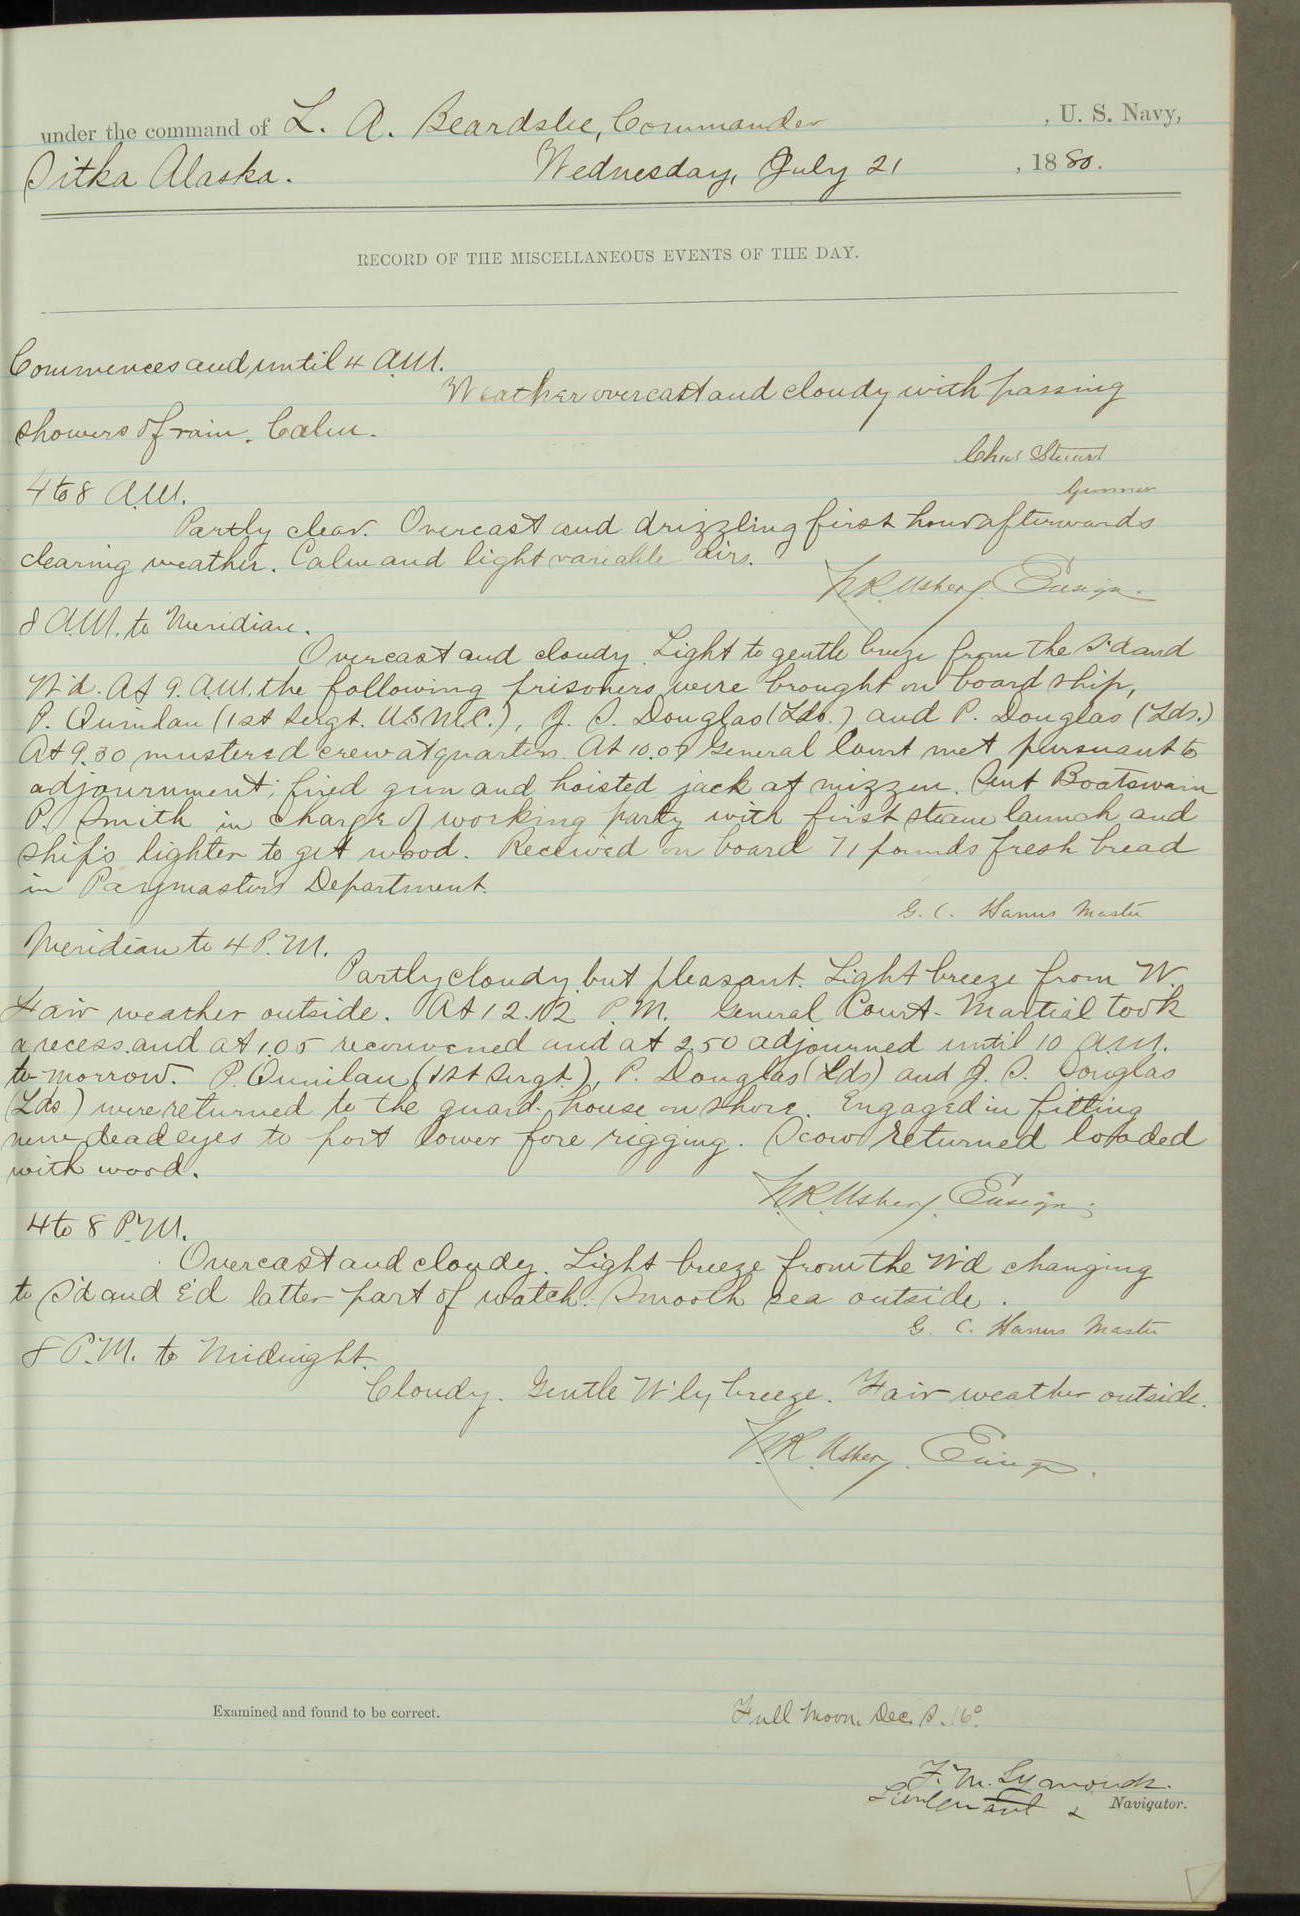 under the command of L. A. Beardslee, Commander , U. S. Navy,
Sitka Alaska. Wednesday, July 21 , 1880.
RECORD OF THE MISCELLANEOUS EVENTS OF THE DAY.
Commences and until 4 A.M.
Weather overcast and cloudy with passing
showers of rain. Calm.
Chas Stuart
Gunner
4 to 8 A.M.
Partly clear. Overcast and drizzling first hour afterwards
clearing weather. Calm and light variable airs.
N.R. Usher, Ensign.
8 A.M. to Meridian.
Overcast and cloudy. Light to gentle breeze from the S'd and
W'd. At 9. A.M. the following prisoners were brought on board ship,
P. Quinlan (1st Sergt. U.S.M.C.), J. S. Douglas (Lds.) and P. Douglas (Lds.)
At 9.30 mustered crew at quarters. At 10.07 General Court met pursuant to
adjournment; fired gun and hoisted jack at mizzen. Sent Boatswain
P. Smith in charge of working party with first steam launch and
ship's lighter to get wood. Received on board 71 pounds fresh bread
in Paymaster's Department.
G. C. Hanus Master
Meridian to 4 P.M.
Partly cloudy but pleasant. Light breeze from W.
Fair weather outside. At 12.12 P.M. General Court-Martial took
a recess and at 1.05 reconvened and at 2.50 adjourned until 10 A.M.
to-morrow. P. Quinlan (1st Sergt.), P. Douglas (Lds) and J. S. Douglas
(Lds) were returned to the guard-house on shore. Engaged in fitting
new deadeyes to port lower fore rigging. Scow returned loaded
with wood.
N.R. Usher, Ensign.
4 to 8 P.M.
Overcast and cloudy. Light breeze from the W'd changing
to S'd and E'd latter part of watch. Smooth sea outside.
G. C. Hanus Master
8 P.M. to Midnight.
Cloudy. Gentle W'ly breeze. Fair weather outside.
N.R. Usher, Ensign.
Examined and found to be correct.
Full Moon. Dec. S. 16°
F. M. Symonds.
Lieutenant & Navigator.